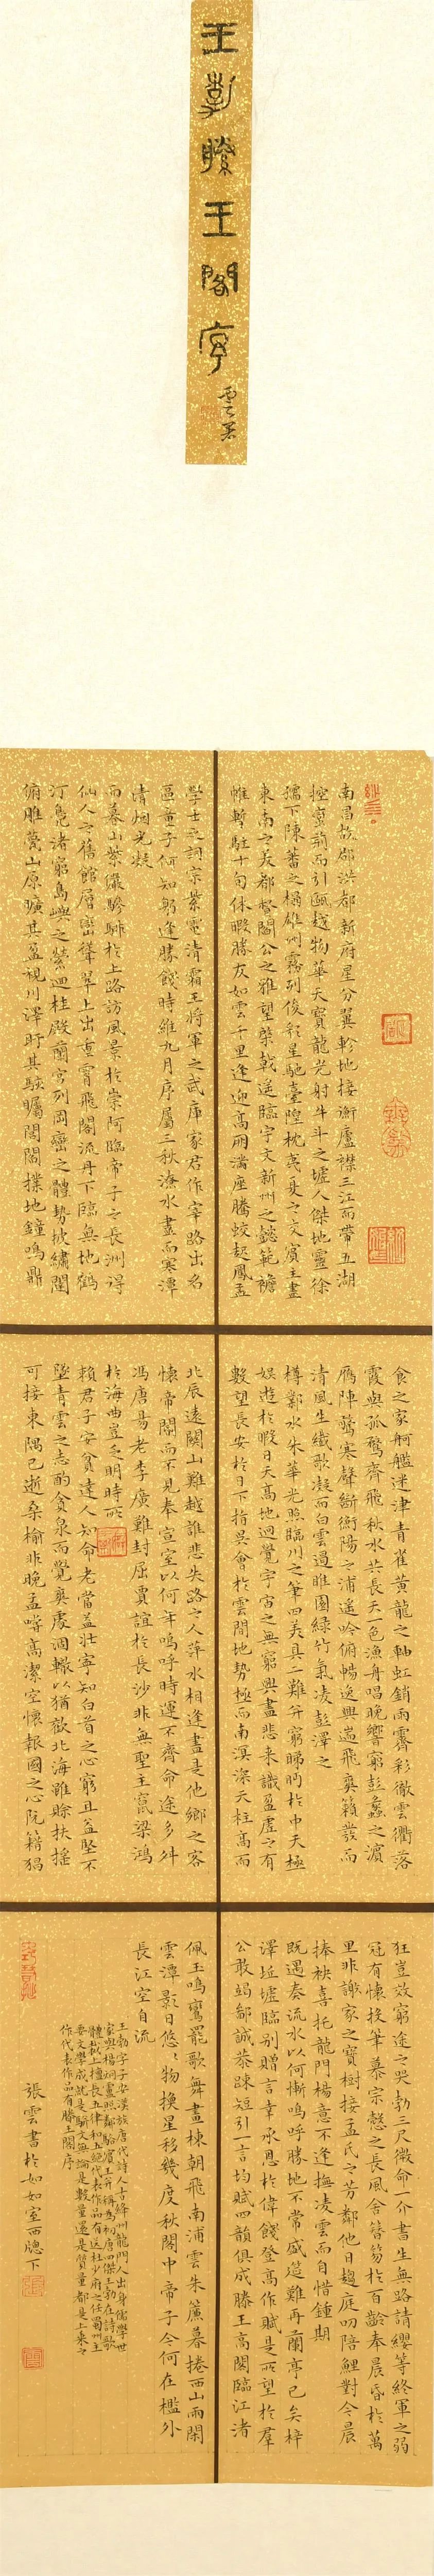 王勃滕王閣序
雲署
南昌故郡洪都新府星分翼軫地接衡廬襟三江而帶五湖
控蠻荊而引甌越物華天寶龍光射牛斗之墟人傑地靈徐
孺下陳蕃之榻雄州霧列俊彩星馳臺隍枕夷夏之交賓主盡
東南之美都督閻公之雅望棨戟遙臨宇文新州之懿範襜
帷暫駐十旬休暇勝友如雲千里逢迎高朋滿座騰蛟起鳳孟
學士之詞宗紫電清霜王將軍之武庫家君作宰路出名
區童子何知躬逢勝餞時維九月序屬三秋潦水盡而寒潭
清烟光凝
而暮山紫儼驂騑於上路訪風景於崇阿臨帝子之長洲得
仙人之舊館層巒聳翠上出重霄飛閣流丹下臨無地鶴
汀鳧渚窮島嶼之縈迴桂殿蘭宮列岡巒之體勢披繡闥
俯雕甍山原曠其盈視川澤盱其駭矚閭閻撲地鐘鳴鼎
食之家舸艦迷津青雀黃龍之軸虹銷雨霽彩徹雲衢落
霞與孤鶩齊飛秋水共長天一色漁舟唱晚響窮彭蠡之濱
雁陣驚寒聲斷衡陽之浦遥吟俯暢逸興遄飛爽籟發而
清風生纖歌凝而白雲遏睢園綠竹氣凌彭澤之
樽鄴水朱華光照臨川之筆四美具二難并窮睇眄於中天極
娛遊於暇日天高地迥覺宇宙之無窮興盡悲來識盈虛之有
數望長安於日下指吳會於雲間地勢極而南溟深天柱高而
北辰遠關山難越誰悲失路之人萍水相逢盡是他鄉之客
懷帝閽而不見奉宣室以何年嗚呼時運不齊命途多舛
馮唐易老李廣難封屈賈誼於長沙非無聖主竄梁鴻
於海曲豈乏明時所
賴君子安貧達人知命老當益壯寧知白首之心窮且益堅不
墜青雲之志酌貪泉而覺爽處涸轍以猶歡北海雖賒扶搖
可接東隅已逝桑榆非晚孟嘗高潔空懷報國之心阮籍猖
狂豈效窮途之哭勃三尺微命一介書生無路請纓等終軍之弱
冠有懷投筆慕宗慤之長風舍簪笏於百齡奉晨昏於萬
里非謝家之寶樹接孟氏之芳鄰他日趨庭叨陪鯉對今晨
捧袂喜托龍門楊意不逢撫凌雲而自惜鍾期
既遇奏流水以何慚嗚呼勝地不常盛筵難再蘭亭已矣梓
澤丘墟臨别贈言幸承恩於偉餞登高作賦是所望於羣
公敢竭鄙誠恭疎短引一言均賦四韻俱成滕王高閣臨江渚
佩玉鳴鸞罷歌舞畫棟朝飛南浦雲朱簾暮捲西山雨閑
雲潭影日悠悠物換星移幾度秋閣中帝子今何在檻外
長江空自流
王勃字子安漢族唐代詩人古絳州龍門人出身儒學世
家與楊炯盧照鄰駱賓王并稱為初唐四傑王勃在詩歌
體裁上擅長五律和五絕代表作品有送杜少府之任蜀州主
要文學成就是駢文無論是數量還是質量都是上乘之
作代表作品有滕王閣序
張雲書於如如室西牕下